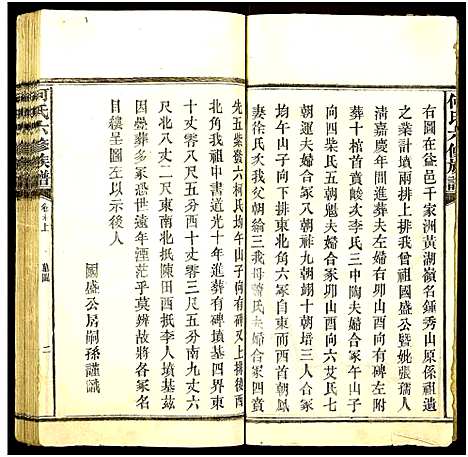 何氏六修族譜
右圖在益邑千家洲黃湖嶺名鍾秀山原係祖遺
之業計墳兩排上排我曾祖國盛公暨妣張孺人
清嘉慶年間進葬夫左婦右卯山酉向有碑左附
葬十棺首虞歆李氏三中陶夫婦合冢午山子
向四柴氏五朝魁夫婦合冢卯山酉向六艾氏七
朝運夫婦合冢八朝祚九朝翊十朝培三人合冢
均午山子向下排東北角六冢自東而西首朝鳳
妻徐氏彡我父朝綸三我母曾氏夫婦合冢四賁
先五紫發六柯氏均午山子向有碑上排後西
角我祖中書道光十年進葬有碑墳基四界東
十丈零八尺五分西十丈零三尺五分南九丈六
尺北八丈二尺東南北抵陳田西抵李人墳基茲
因叠葬多冢憑世遠年湮茫乎莫辨故將各冢名
目縷呈圖左以示後人
國盛公房嗣孫謹識
何氏六修族譜
卷之上
墓圖
二